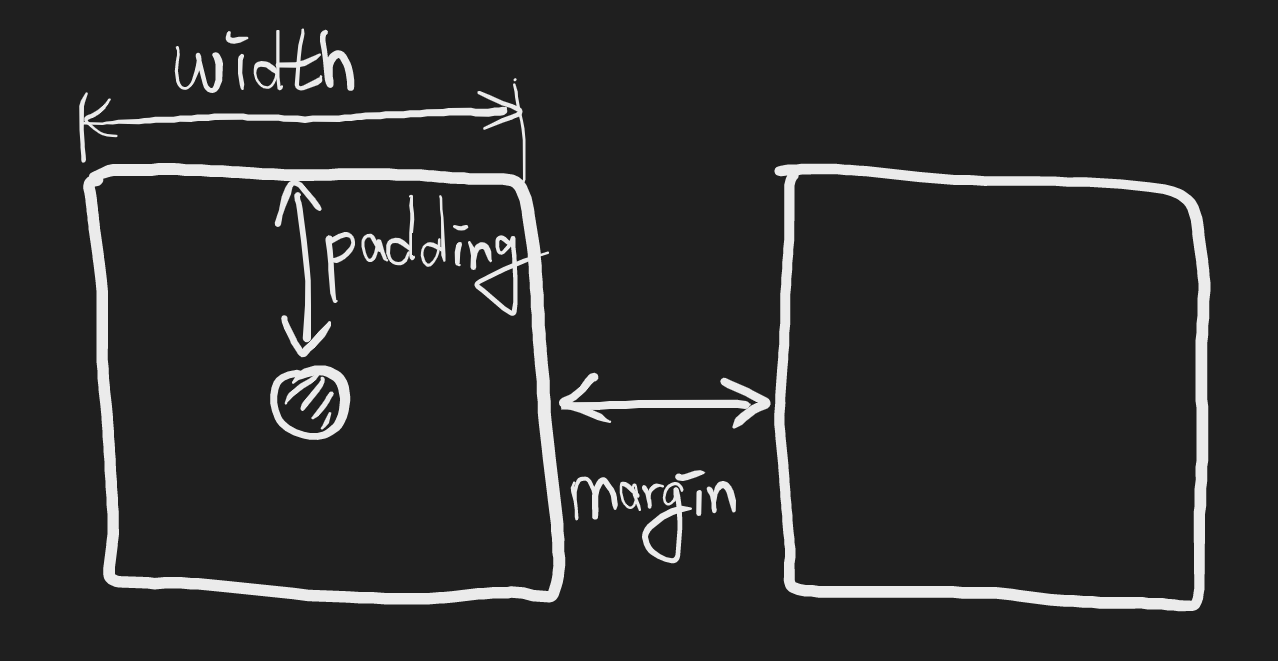 width
padding
margin